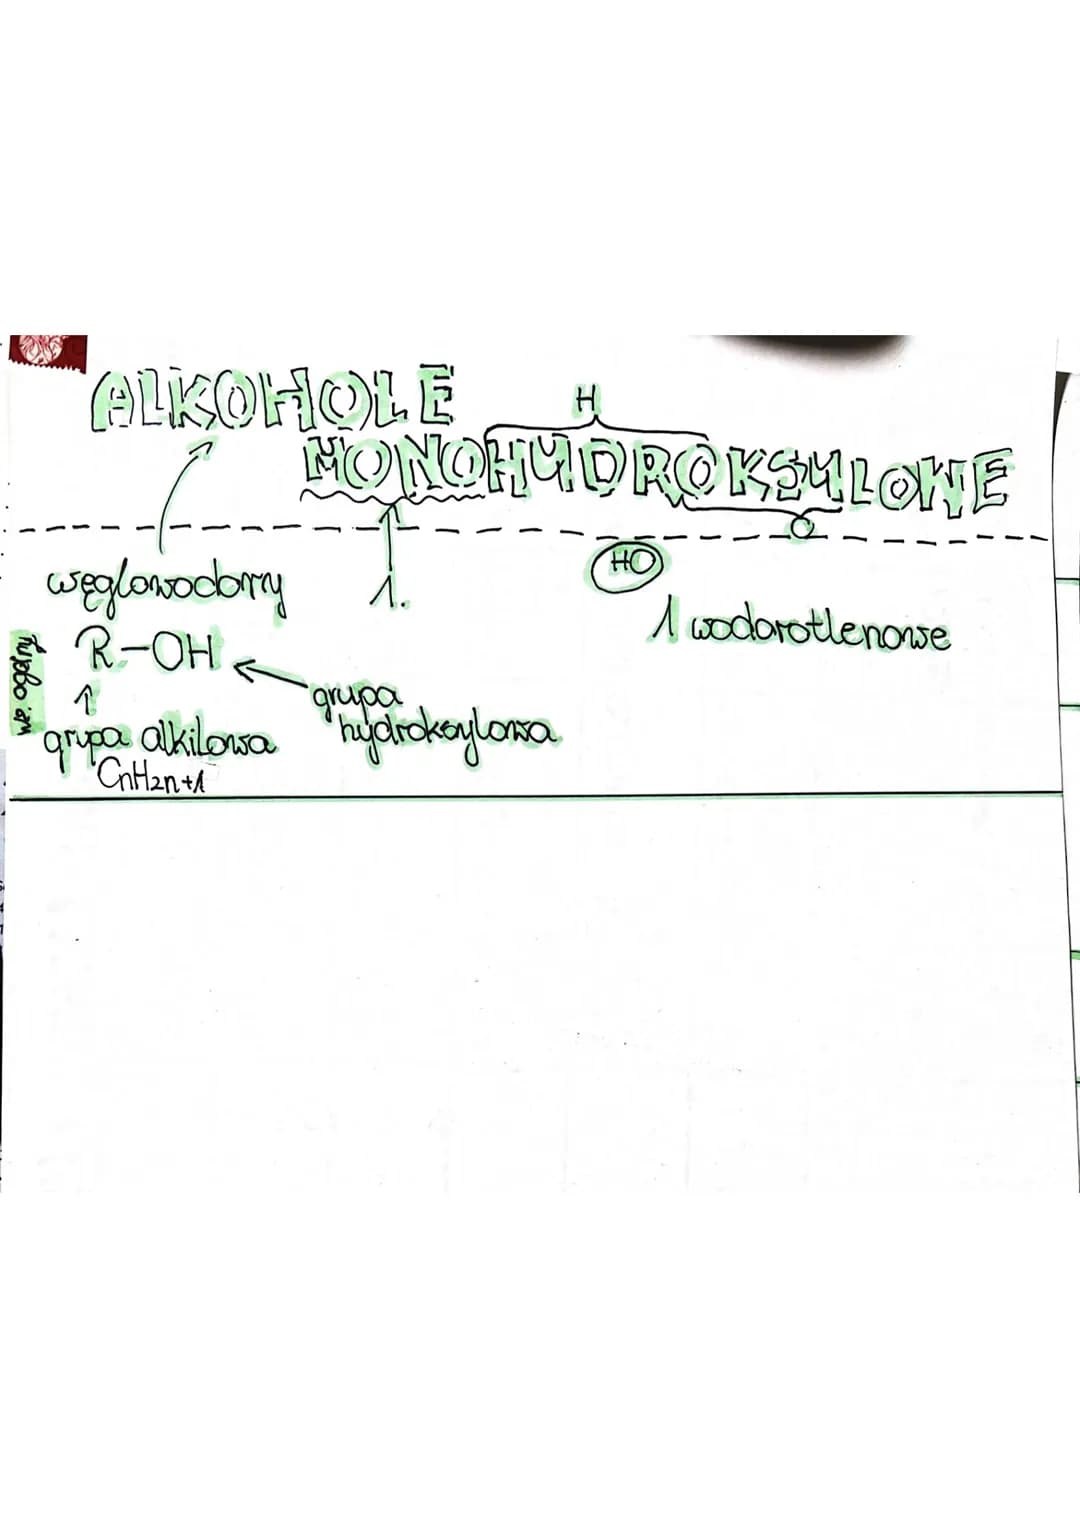 ALKOHOLE
H
MONOHYDROKSYLOWE
O
HO
węglowodorny
1.
1 wodorotlenowe
R-OH
grupa
hydroksylowa
grupa alkilowa
CnH2n+1